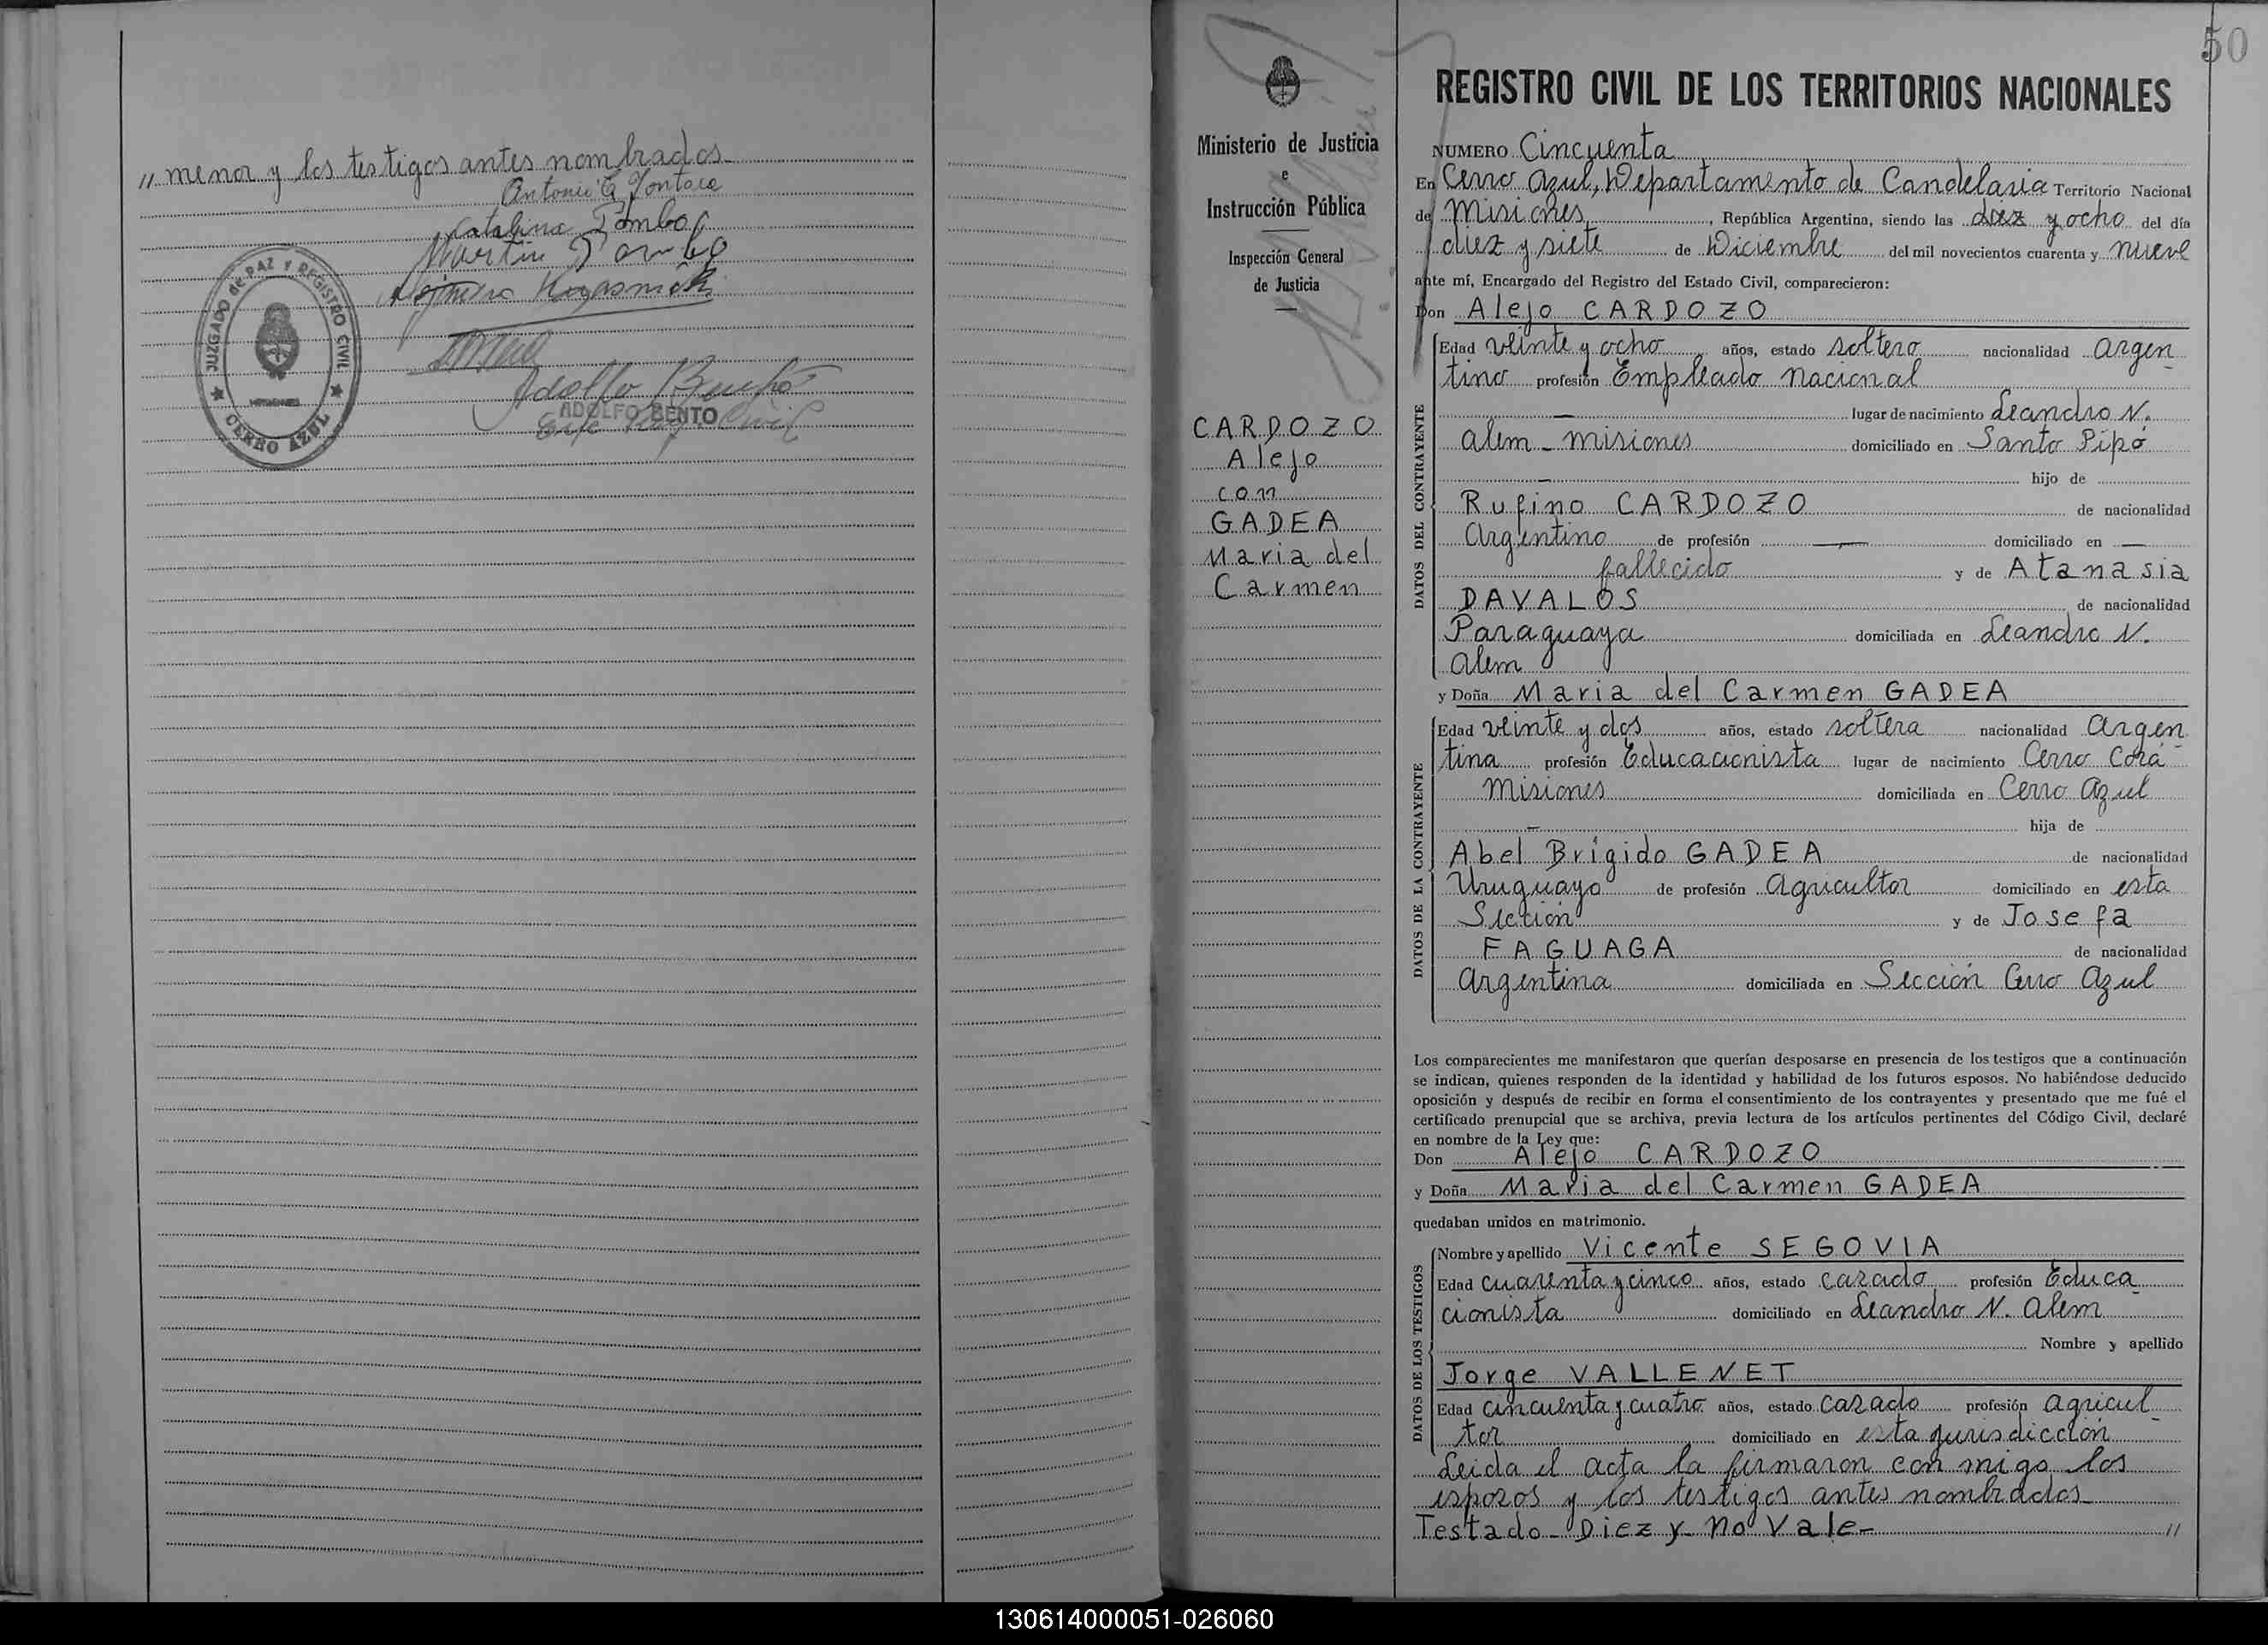 " menor y los testigos antes nombrados
Catalina
Martin
JUZGADO de PAZ Y REGISTRO CIVIL
CERRO AZUL
ADOLFO BENTO
50
Ministerio de Justicia
e
Instrucción Pública
Inspección General
de Justicia
CARDOZO
Alejo
con
GADEA
Maria del
Carmen
REGISTRO CIVIL DE LOS TERRITORIOS NACIONALES
NUMERO Cincuenta
En Cerro Azul, Departamento de Candelaria Territorio Nacional
de Misiones, República Argentina, siendo las diez y ocho del día
diez y siete de Diciembre del mil novecientos cuarenta y nueve
ante mí, Encargado del Registro del Estado Civil, comparecieron:
Don Alejo CARDOZO
DATOS DEL CONTRAYENTE
Edad veinte y ocho años, estado soltero nacionalidad Argen
tino profesión Empleado nacional
lugar de nacimiento Leandro N.
Alem - Misiones domiciliado en Santo Pipó
hijo de
Rufino CARDOZO de nacionalidad
Argentino de profesión — domiciliado en —
fallecido y de Atanasia
DAVALOS de nacionalidad
Paraguaya domiciliada en Leandro N.
Alem
y Doña Maria del Carmen GADEA
DATOS DE LA CONTRAYENTE
Edad veinte y dos años, estado soltera nacionalidad Argen
tina profesión Educacionista lugar de nacimiento Cerro Corá
Misiones domiciliada en Cerro Azul
hija de
Abel Brígido GADEA de nacionalidad
Uruguayo de profesión Agricultor domiciliado en esta
Sección y de Josefa
FAGUAGA de nacionalidad
Argentina domiciliada en Sección Cerro Azul
Los comparecientes me manifestaron que querían desposarse en presencia de los testigos que a continuación
se indican, quienes responden de la identidad y habilidad de los futuros esposos. No habiéndose deducido
oposición y después de recibir en forma el consentimiento de los contrayentes y presentado que me fué el
certificado prenupcial que se archiva, previa lectura de los artículos pertinentes del Código Civil, declaré
en nombre de la Ley que:
Don Alejo CARDOZO
y Doña Maria del Carmen GADEA
quedaban unidos en matrimonio.
DATOS DE LOS TESTIGOS
Nombre y apellido Vicente SEGOVIA
Edad cuarenta y cinco años, estado casado profesión Educa
cionista domiciliado en Leandro N. Alem
Nombre y apellido
Jorge VALLENET
Edad cincuenta y cuatro años, estado casado profesión agricul
tor domiciliado en esta jurisdicción
Leida el acta la firmaron con migo los
esposos y los testigos antes nombrados
Testado - Diez y - no Vale - "
130614000051-026060